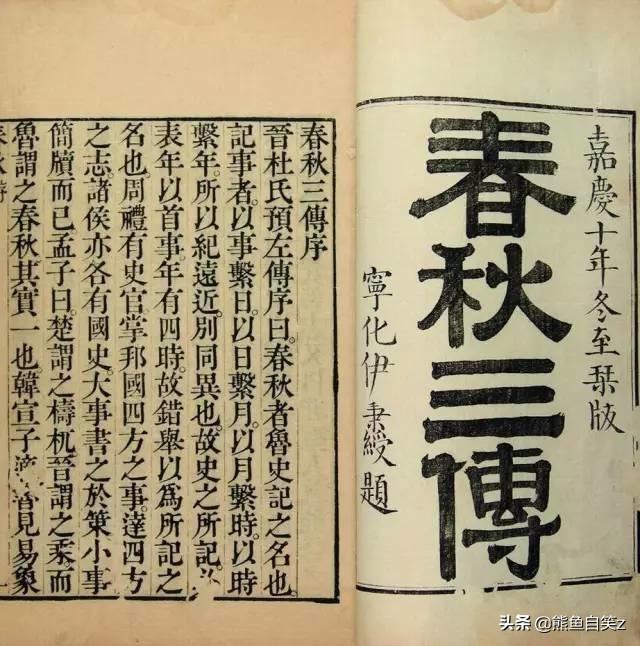 嘉慶十年冬至栞版
春秋三傳
寧化伊秉綬題
春秋三傳序
晉杜氏預左傳序曰。春秋者魯史記之名也
記事者。以事繫日。以日繫月。以月繫時。以時
繫年。所以紀遠近。別同異也。故史之所記。
表年以首事。年有四時。故錯舉以爲所記之
名也。周禮有史官。掌邦國四方之事。達四方
之志。諸侯亦各有國史。大事書之於策。小事
簡牘而已。孟子曰。楚謂之檮杌。晉謂之乘。而
魯謂之春秋。其實一也。韓宣子適魯見易象
头条 @熊鱼自笑z